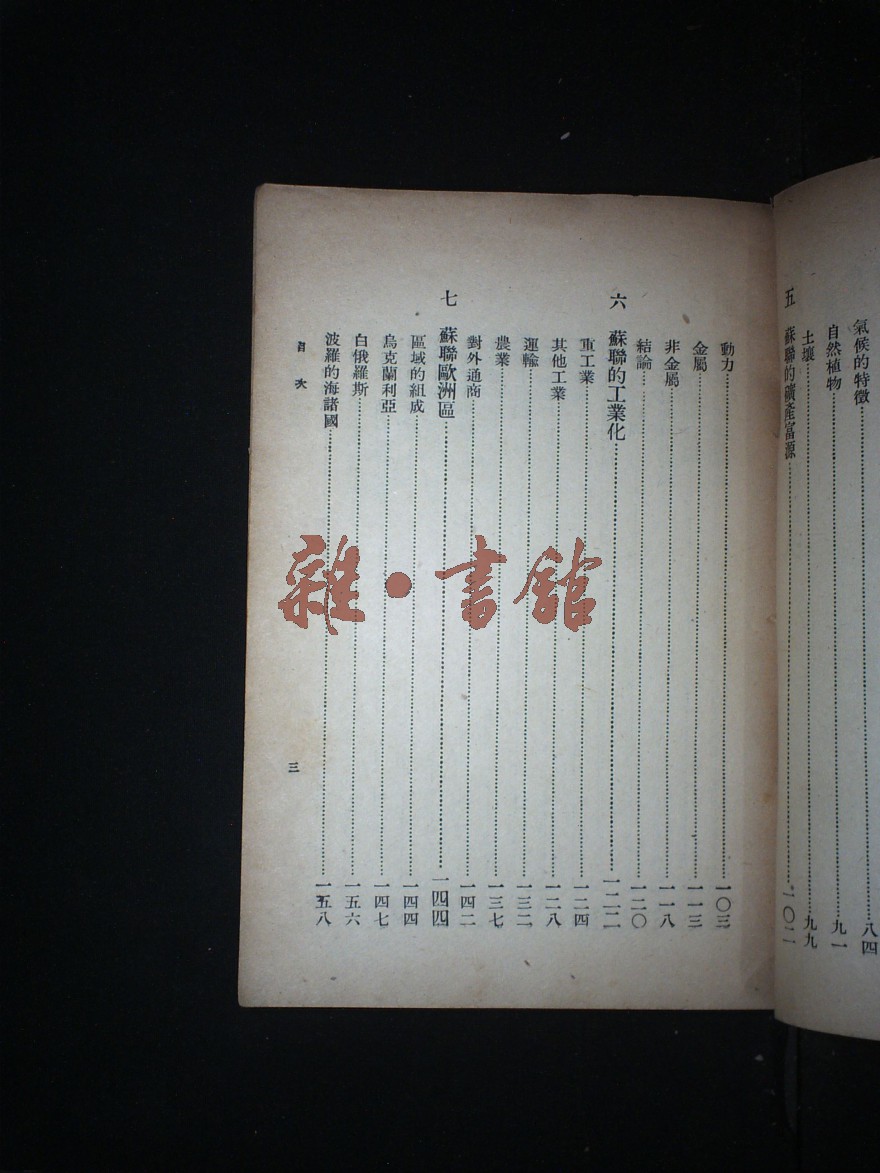 氣候的特徵……八四
自然植物……九一
土壤……九九
五 蘇聯的礦產富源……一〇二
動力……一〇三
金屬……一一三
非金屬……一一八
結論……一二〇
六 蘇聯的工業化……一二二
重工業……一二四
其他工業……一二八
運輸……一三二
農業……一三七
對外通商……一四二
七 蘇聯歐洲區……一四四
區域的組成……一四四
烏克蘭利亞……一四七
白俄羅斯……一五六
波羅的海諸國……一五八
目次
三
雜·書館